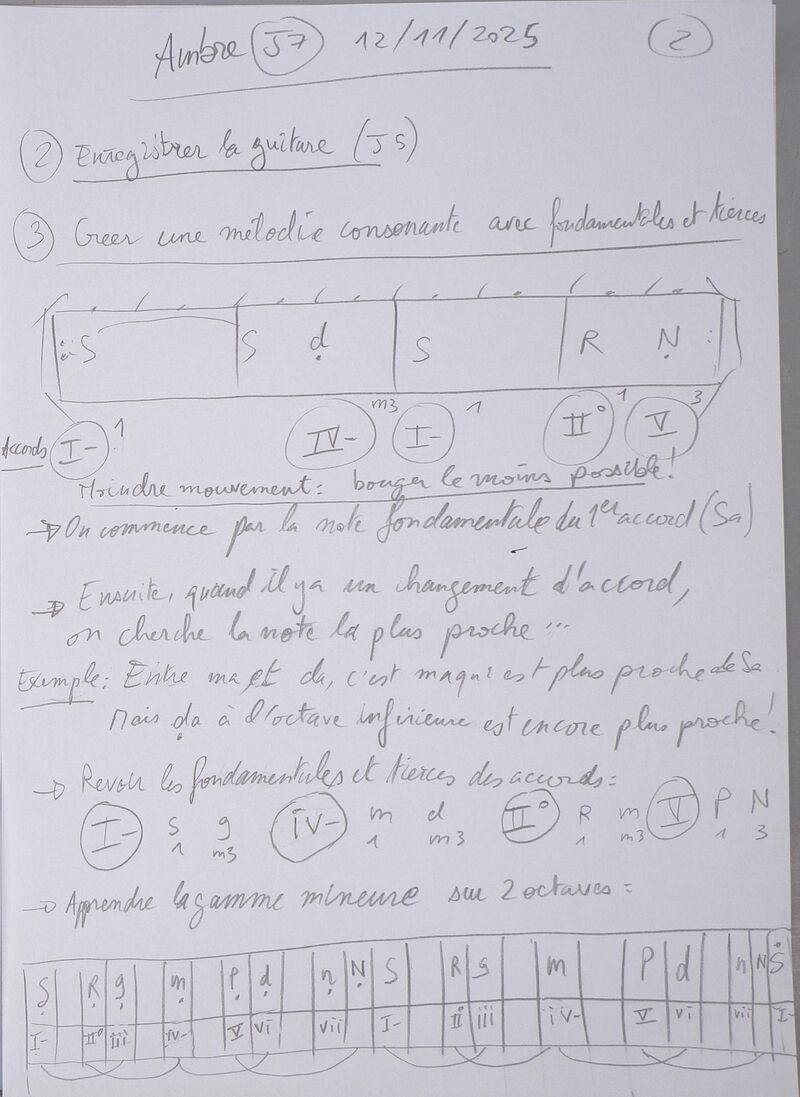 Ambre J7 12/11/2025 2
2 Enregistrer la guitare (J5)
3 Créer une mélodie consonante avec fondamentales et tierces
S S ḍ S R Ṇ
Accords I- 1 IV- m3 I- 1 II° 1 V 3
Moindre mouvement : bouger le moins possible !
→ On commence par la note fondamentale du 1er accord (Sa)
→ Ensuite, quand il y a un changement d'accord,
on cherche la note la plus proche ...
Exemple : Entre ma et da, c'est ma qui est plus proche de Sa
Mais ḍa à l'octave inférieure est encore plus proche !
→ Revoir les fondamentales et tierces des accords =
I- S g iv- m d II° R m V P N
1 m3 1 m3 1 m3 1 3
→ Apprendre la gamme mineure sur 2 octaves =
Ṣ Ṛ g̣ ṃ P̣ ḍ ṇ Ṇ S R g m P d n N Ṡ
I- II° iii iv- V vi vii I- II iii iv- V vi vii I-